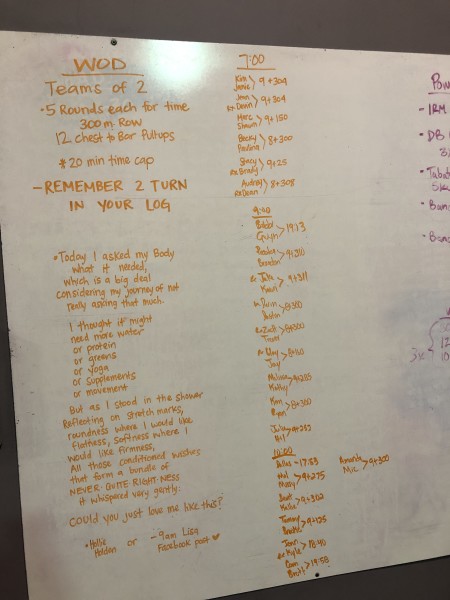 WOD
Teams of 2
•5 Rounds each for time
300m Row
12 Chest to Bar Pullups
* 20 min time cap
- REMEMBER 2 TURN
IN YOUR LOG
•Today I asked my Body
what it needed,
which is a big deal
considering my journey of not
really asking that much.
I thought it might
need more water
or protein
or greens
or yoga
or supplements
or movement
But as I stood in the shower
Reflecting on stretch marks,
roundness where I would like
flatness, Softness where I
would like firmness,
All those conditioned wishes
that form a bundle of
NEVER-QUITE-RIGHT-NESS
it whispered very gently:
COULD YOU JUST LOVE ME LIKE THIS?
•Hollie
Holden
or
-9am Lisa
Facebook post
7:00
Kim
Jamie > 9+304
Jenn
Rx Dean > 9+304
Marc
Shawn > 9+150
Becky
Paulina > 8+300
Stacy
Rx Brady > 9+25
Audrey
Rx Dean > 8+308
9:00
Bobbi
> 19:13
Brandon
Jake
> 9+311
Trent
Jay
Melissa
Kelly > 9+285
Kim
Ryan > 8+300
Julie
> 9+252
10:00
> 17:53
Mary > 9+275
> 9+302
Tammy
> 9+125
Jenn
Rx Kyle > 18:40
> 19:58
Amanda
Mic > 9+300
1RM
DB